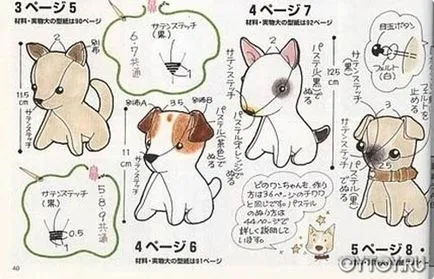 3ページ5
材料・実物大の型紙は90ページ
サテンステッチ
(黒)
6・7共通
1
2
別布
11.5cm
サテンステッチ
サテンステッチ
(黒)
0.5
1
5 8 9共通
40
別布A
3.5
別布B
11cm
サテンステッチ
パステル(茶色)でぬる
4ページ6
材料・実物大の型紙は91ページ
4ページ7
材料・実物大の型紙は92ページ
2
12.5cm
サテンステッチ
パステル(黒)でぬる
パステル(オレンジ)でぬる
どのワンちゃんも、作り
方は36ページのチワワ
と同じです。パステル
のぬり方は
44ページで
詳しく説明して
います。
目玉ボタン
フェルト(白)
フェルトを止める
サテンステッチ(黒)
3
パステル(黒)
5ページ8